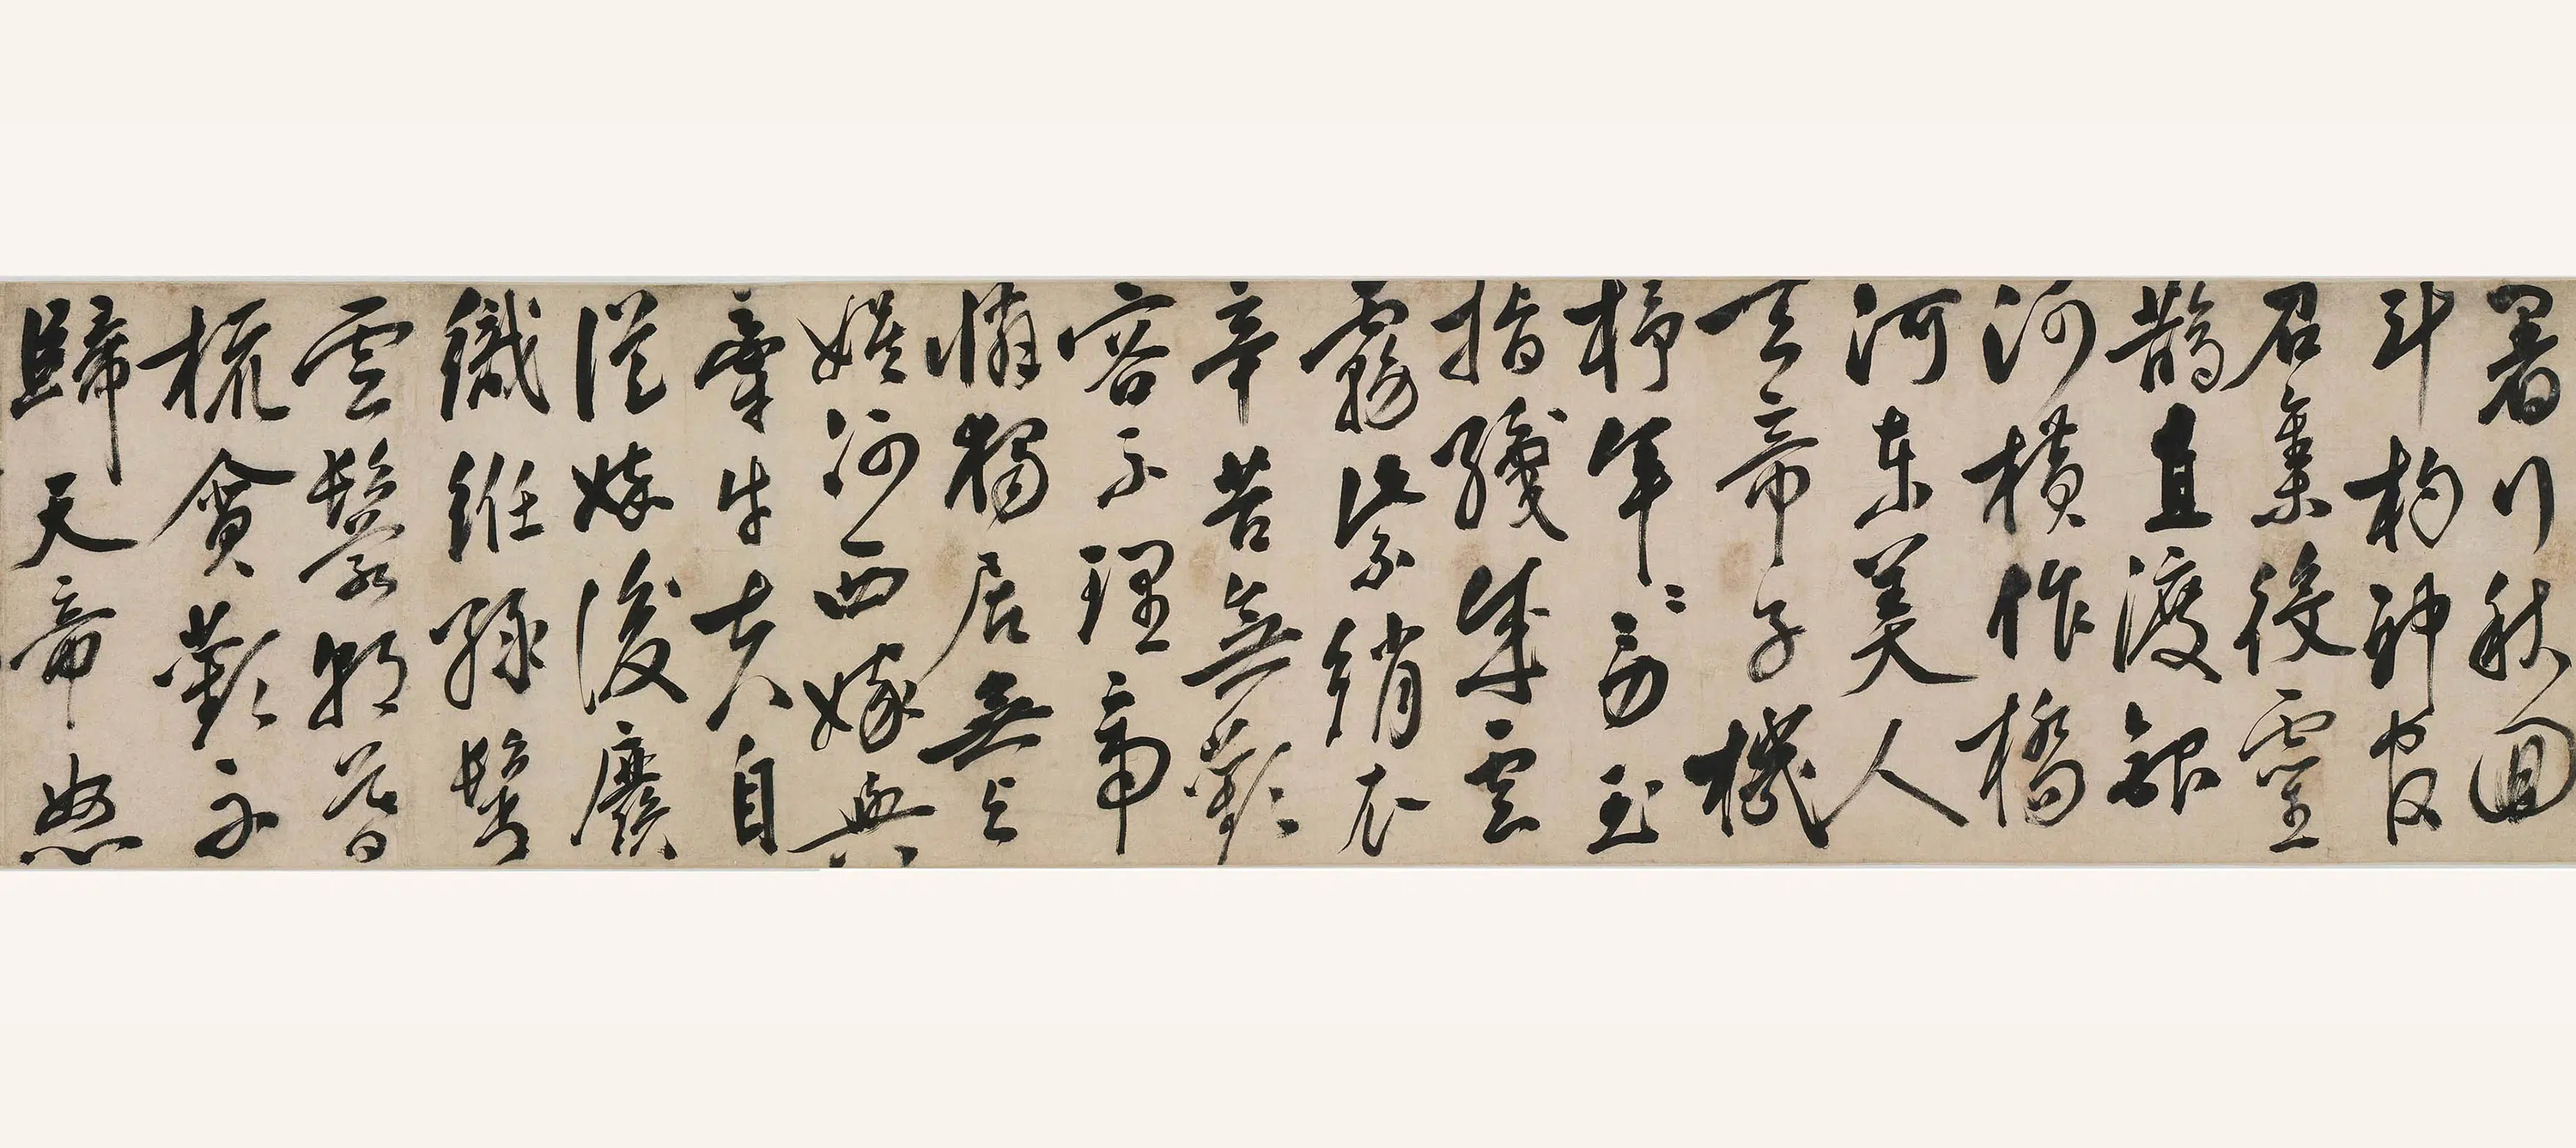 行秋回
斗杓神官
召集役靈
鵲直渡銀
河橫作橋
河東美人
天帝子機
杼年〻勞玉
指織成雲
霧紫綃衣
辛苦無歡
容不理帝
憐獨居無与
娛河西嫁與
牽牛夫自
從嫁後廢
織紝綠鬢
雲鬟朝暮
梳貪歡不
歸天帝怒